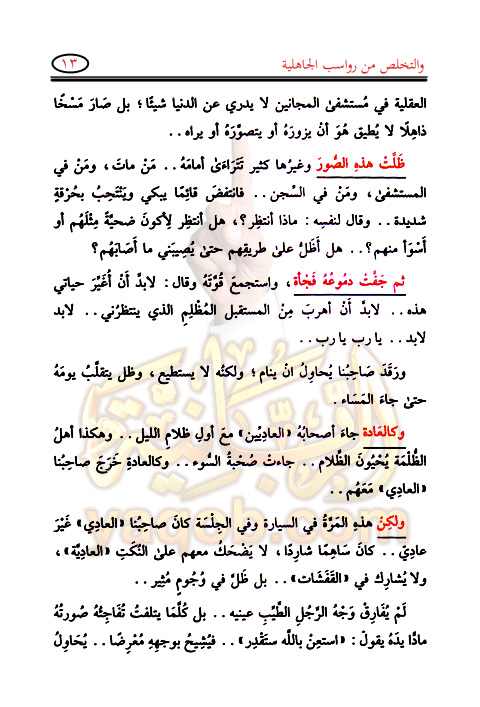 والتخلص من رواسب الجاهلية
١٣
العقلية في مُستشفىٰ المجانين لا يدري عن الدنيا شيئًا؛ بل صَارَ مَسْخًا
ذاهِلًا لا يُطيق هُوَ أنْ يزورَهُ أو يتصوَّرَهُ أو يراه..
ظَلَّتْ هذهِ الصُّورَ وغيرُها كثير تَتَرَاءَىٰ أمامَهُ.. مَنْ ماتَ، ومَنْ في
المستشفىٰ، ومَنْ في السِّجن.. فانتفضَ قائِمًا يبكي ويَنْتَحِبُ بحُرْقةٍ
شديدة.. وقال لنفسِه: ماذا أنتظِر؟، هل أنتظِر لِأكونَ ضحيَّةً مِثْلَهُم أو
أَسْوَأ منهم؟.. هل أَظَلُّ علىٰ طريقِهم حتىٰ يُصِيبَني ما أَصَابَهُم؟
ثم جَفَّتْ دمُوعُهُ فَجْأة، واستجمعَ قُوَّتَهُ وقال: لابدَّ أنْ أُغَيِّرَ حياتي
هذه.. لابدَّ أَنْ أهربَ مِنْ المستقبل المُظْلِمِ الذي ينتظرُني.. لابد
لابد.. يا رب يا رب..
ورَقَدَ صَاحِبُنا يُحاوِلُ انْ ينام؛ ولكنَّه لا يستطيع، وظل يتقلَّبُ يومَهُ
حتىٰ جاءَ المَسَاء.
وكالعَادة جاءَ أصحابُهُ «العاديِّين» مَعَ أولِ ظلامِ الليل.. وهكذا أهلُ
الظُّلْمَة يُحْيُونَ الظَّلام.. جاءتْ صُحْبةُ السُّوء.. وكالعادةِ خَرَجَ صاحِبُنا
«العادي» مَعَهُم..
ولٰكِنْ هذهِ المَرَّةُ في السيارة وفي الجِلْسَة كانَ صاحِبُنا «العادي» غَيْرَ
عاديّ.. كانَ سَاهِمًا شارِدًا، لا يَضْحَكُ معهم علىٰ النُّكَتِ «العاديَّة»،
ولا يُشارِك في «القَفَشَات».. بل ظَلَّ في وُجُومٍ مُثِير..
لَمْ يُفَارِقْ وَجْهُ الرَّجُلِ الطَّيِّبِ عينيه.. بل كُلَّمَا يتلفتُ تُفَاجِئُهُ صُورتُهُ
مادًّا يدَهُ يقولُ: «استعِنْ باللَّه ستَقْدِر».. فيُشِيحُ بوجهِهِ مُعْرِضًا.. يُحَاوِلُ